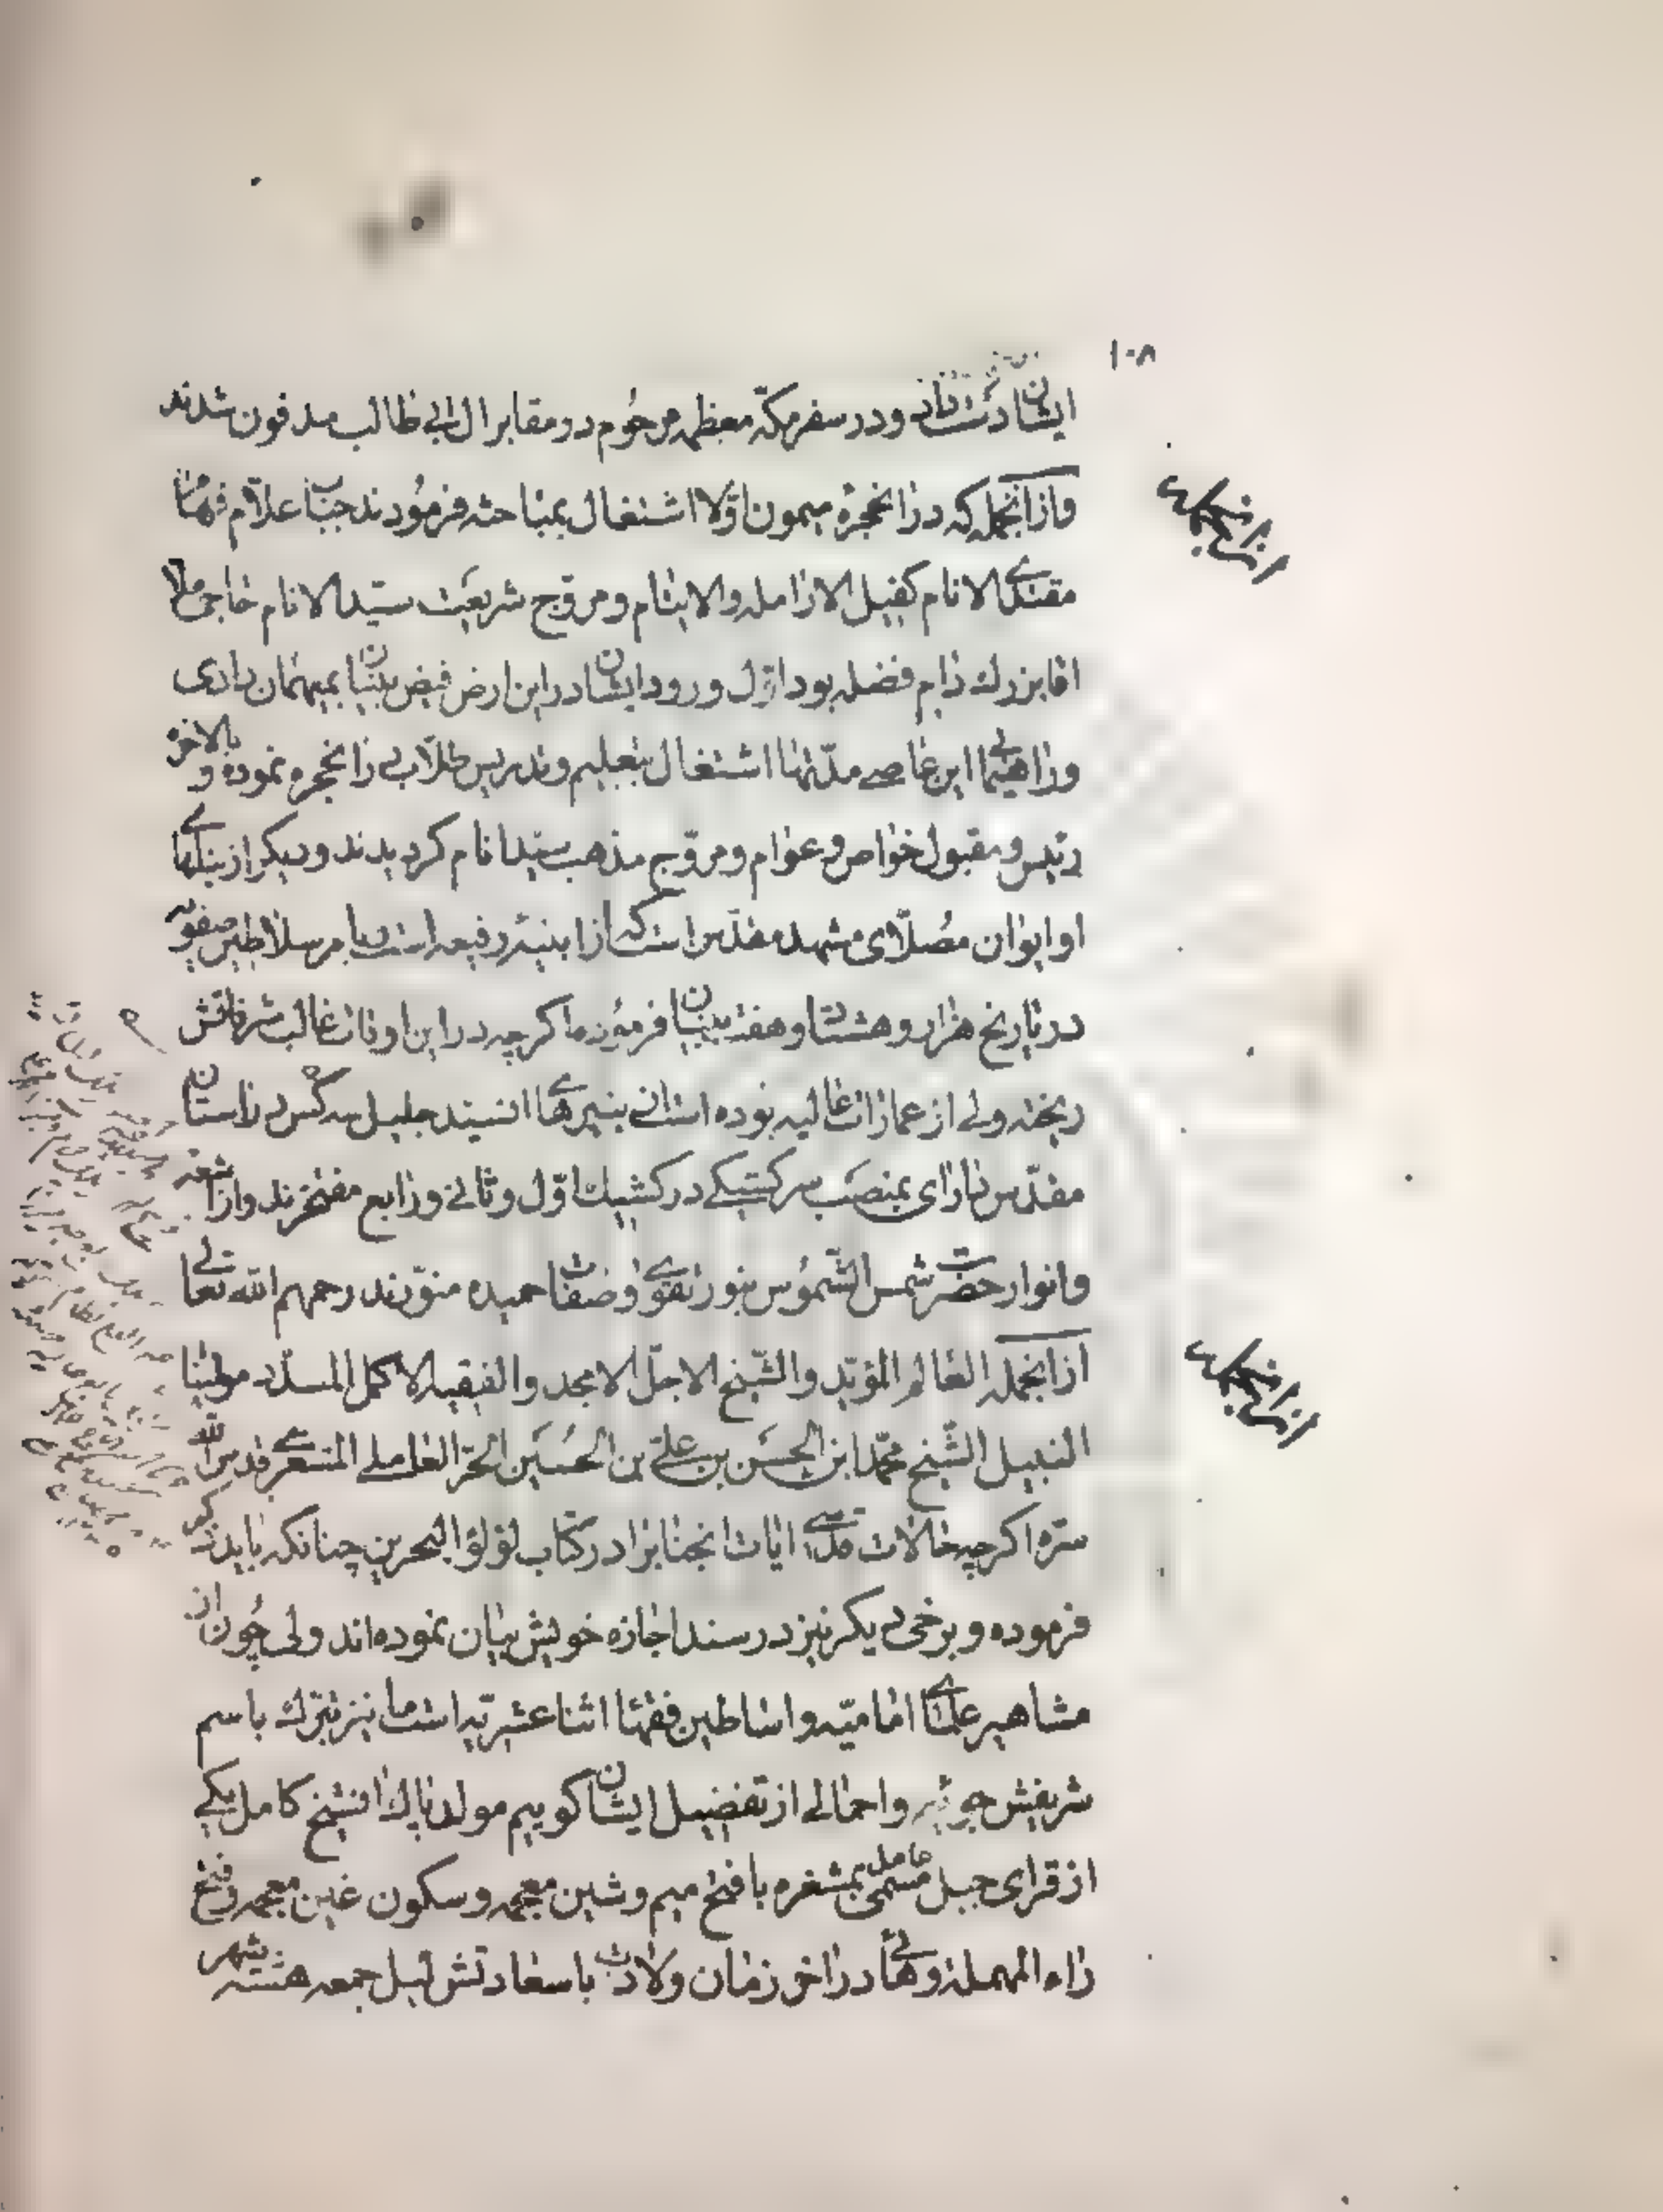 ۱۰۸
ایشان دست داد و در سفر مکّه معظمه مرحُوم در مقابر ال ابی طالب مدفون شدند
و از انجمله که در انحجره میمون اوّلا اشتغال بمباحثه فرمُودند جناب علّام فهام
ازانجمله
مقتدی الانام کفیل الارامله والایتام و مروّج شریعت سیّد الانام حاجی ملا
اقا بزرك دام فضله بود اوّل ورود ایشان در این ارض فیض بنیان بمیهمان داری
و راهنمایی این عاصی مدّتها اشتغال بتعلیم و تدریس طلّاب در انحجره نموده و بالاخره
رئیس و مقبول خواص و عوام و مروّج مذهب سید انام کردیدند و دیکر از بناهای
او ایوان مصُلّای مشهد مقدّس است که از ابنیهٔ رفیعه است بامر سلاطین صفویّه
در تاریخ هزار و هشتاد و هفت بنیان فرموُده اکرچه در این اوقات غالب شرفاتش
ریخته ولی از عمارات عالیه بوده است نبیرهای انسیّد جلیل سه کس در استان
مقدّس دارای بمنصَب سرکشیکی در کشیك اوّل و ثانی و رابع مفتخرند و از اشعّه
و انوار حضرت شمس الشّموُس بنور تقوی و صفات حمیده منوّرند رحمهم الله تعالی
ازانجمله العالم المؤیّد والشّیخ الاجلّ الامجد والفقیه الاکمل المسدّد مولینا
ازانجمله
النبیل الشّیخ محمّد ابن الحسَن بن علیّ بن الحسُیَن الحرّ العاملی المشغری قدس الله
سرّه اکرچه حالات قدسی ایات انجناب را در کتاب لؤلؤ البحرین چنانکه باید ذکر
فرموده و برخی دیکر نیز در سند اجازه خویش بیان نموده‌اند ولی چُون از
مشاهیر علمای امامیّه و اساطین فقهاء اثنا عشریّه است ما نیز تبرّك باسم
شریفش جوئیم و اجمالی از تفضیل ایشان کوییم مولد پاك انشیخ کامل یکی
از قرای جبل عامل مسّمی بمشغره با فتح میم و شین معجمه و سکون غین معجمه و فتح
راء المهملة و هائی در اخر زمان ولادت با سعادتش لیل جمعه هشتم شهر